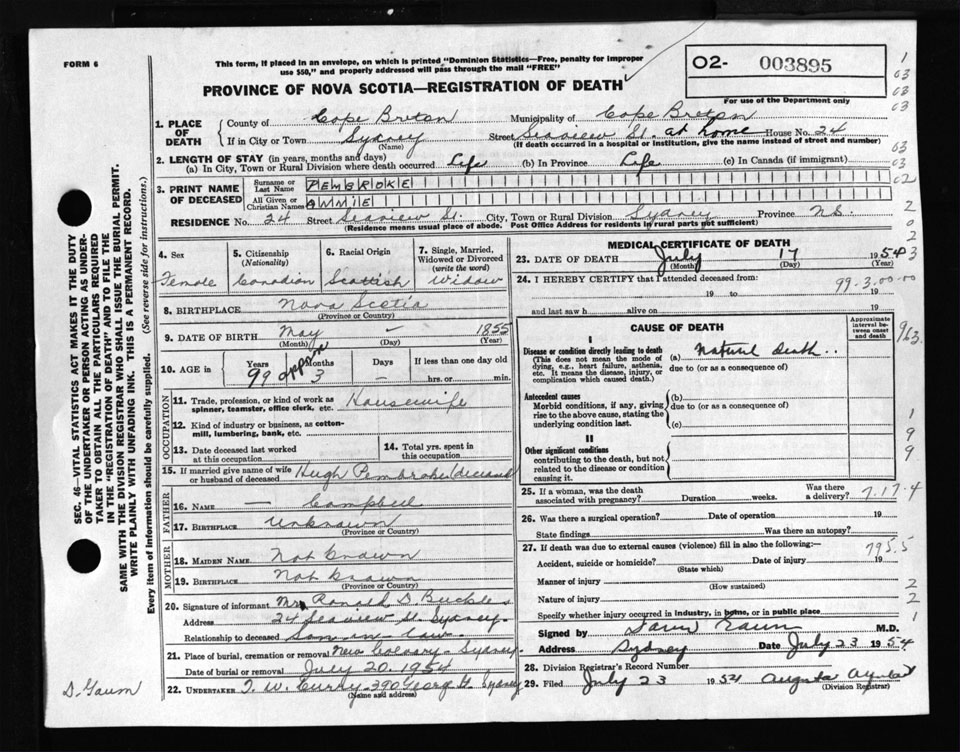 FORM 6
This form, if placed in an envelope, on which is printed "Dominion Statistics—Free, penalty for improper
use $50," and properly addressed will pass through the mail "FREE"
PROVINCE OF NOVA SCOTIA—REGISTRATION OF DEATH
O2- 003895
For use of the Department only
1. PLACE OF DEATH
County of Cape Breton Municipality of Cape Breton
If in City or Town Sydney (Name) Street Seaview St. at home House No. 24
(If death occurred in a hospital or institution, give the name instead of street and number)
2. LENGTH OF STAY (in years, months and days)
(a) In City, Town or Rural Division where death occurred Life (b) In Province Life (c) In Canada (if immigrant)
3. PRINT NAME OF DECEASED
Surname or Last Name PEMBROKE
All Given or Christian Names ANNIE
RESIDENCE No. 24 Street Seaview St. City, Town or Rural Division Sydney Province N.S.
(Residence means usual place of abode. Post Office Address for residents in rural parts not sufficient)
4. Sex Female
5. Citizenship (Nationality) Canadian
6. Racial Origin Scottish
7. Single, Married, Widowed or Divorced (write the word) Widow
8. BIRTHPLACE Nova Scotia
(Province or Country)
9. DATE OF BIRTH May — 1855
(Month) (Day) (Year)
10. AGE in Years 99 Months 3 Days — If less than one day old
approx
hrs. or min.
OCCUPATION
11. Trade, profession, or kind of work as spinner, teamster, office clerk, etc. Housewife
12. Kind of industry or business, as cotton-mill, lumbering, bank, etc.
13. Date deceased last worked at this occupation
14. Total yrs. spent in this occupation
15. If married give name of wife or husband of deceased Hugh Pembroke (deceased
FATHER
16. NAME — Campbell
17. BIRTHPLACE Unknown
(Province or Country)
MOTHER
18. MAIDEN NAME Not known
19. BIRTHPLACE Not known
(Province or Country)
20. Signature of informant Mr Ronald D. Buckles
Address 24 Seaview St. Sydney
Relationship to deceased Son in law
21. Place of burial, cremation or removal New Calvary - Sydney
Date of burial or removal July 20. 1954
22. UNDERTAKER T. W. Curry - 390 George St. Sydney
(Name and address)
MEDICAL CERTIFICATE OF DEATH
23. DATE OF DEATH July 17 1954
(Month) (Day) (Year)
24. I HEREBY CERTIFY that I attended deceased from:
99.3.00.00
19 to 19
and last saw h alive on 19
CAUSE OF DEATH
Approximate interval between onset and death
I
Disease or condition directly leading to death (a) Natural Death..
(This does not mean the mode of dying, e.g., heart failure, asthenia, etc. It means the disease, injury, or complication which caused death.)
due to (or as a consequence of)
Antecedent causes
Morbid conditions, if any, giving rise to the above cause, stating the underlying condition last.
(b)
due to (or as a consequence of)
(c)
II
Other significant conditions
contributing to the death, but not related to the disease or condition causing it.
25. If a woman, was the death associated with pregnancy? Duration weeks. Was there a delivery? 7.17.4
26. Was there a surgical operation? Date of operation 19
State findings Was there an autopsy?
27. If death was due to external causes (violence) fill in also the following:— 795.5
Accident, suicide or homicide? Date of injury 19
(State which)
Manner of injury
(How sustained)
Nature of injury
Specify whether injury occurred in industry, in home, or in public place
Signed by M.D.
Address Sydney Date July 23 1954
28. Division Registrar's Record Number
29. Filed July 23 1954 Augusta
(Division Registrar)
SEC. 46—VITAL STATISTICS ACT MAKES IT THE DUTY
OF THE UNDERTAKER OR PERSON ACTING AS UNDER-
TAKER TO OBTAIN ALL THE PARTICULARS REQUIRED
IN THE "REGISTRATION OF DEATH" AND TO FILE THE
SAME WITH THE DIVISION REGISTRAR WHO SHALL ISSUE THE BURIAL PERMIT.
WRITE PLAINLY WITH UNFADING INK. THIS IS A PERMANENT RECORD.
Every item of information should be carefully supplied. (See reverse side for instructions.)
D. Gaum
1
03
03
03
03
03
02
2
0
2
3
963
1
9
9
2
2
1